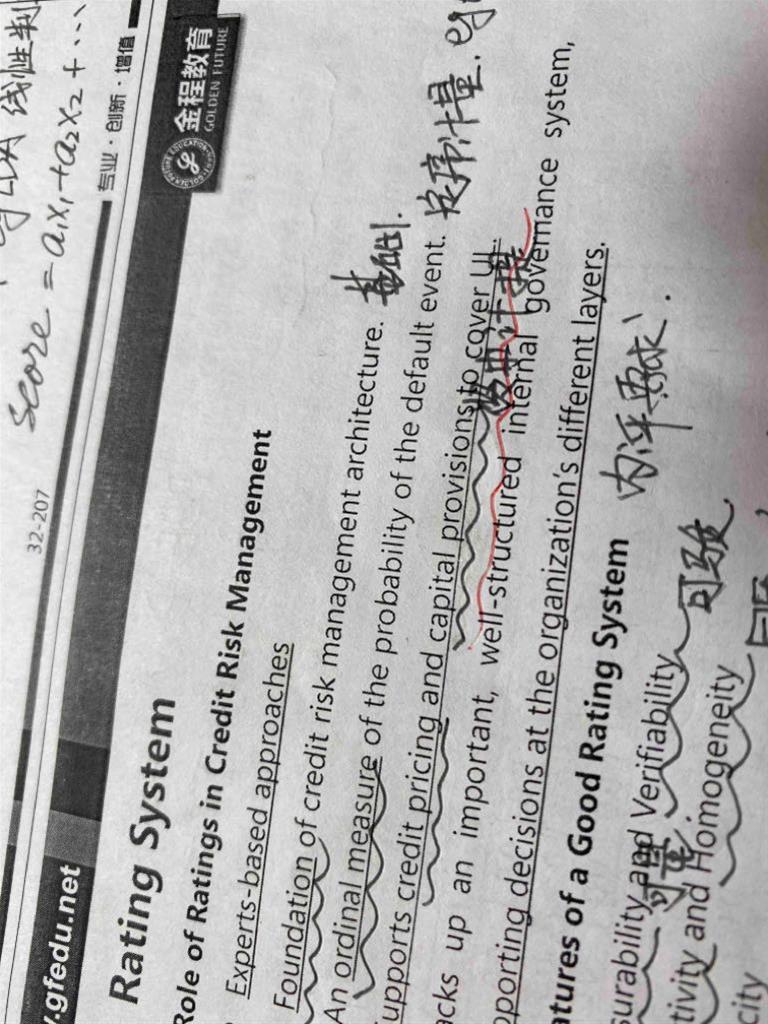 线性判
Score = a₁x₁ + a₂x₂ + ...
32-207
专业·创新·增值
.gfedu.net
金程教育
GOLDEN FUTURE
Rating System
Role of Ratings in Credit Risk Management
Experts-based approaches
Foundation of credit risk management architecture. 基础.
An ordinal measure of the probability of the default event. 定序计量. eg
upports credit pricing and capital provisions to cover UL.
acks up an important, well-structured internal governance system,
pporting decisions at the organization's different layers.
atures of a Good Rating System 内评要求.
surability and Verifiability 可验
可量
tivity and Homogeneity
city